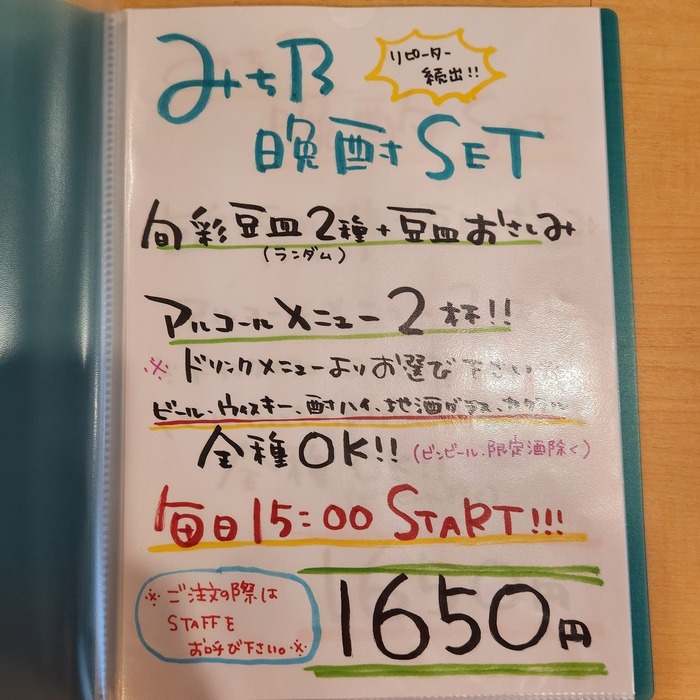 みちB
リピーター
続出!!
晩酌SET
旬彩豆皿2種+豆皿おさしみ
(ランダム)
アルコールメニュー2杯!!
※ドリンクメニューよりお選び下さい
ビール、ウィスキー、酎ハイ、地酒グラス、カクテル
全種OK!!(ビンビール、限定酒除く)
毎日15:00 START!!!
※ご注文の際は
STAFFを
お呼び下さい。※
1650円